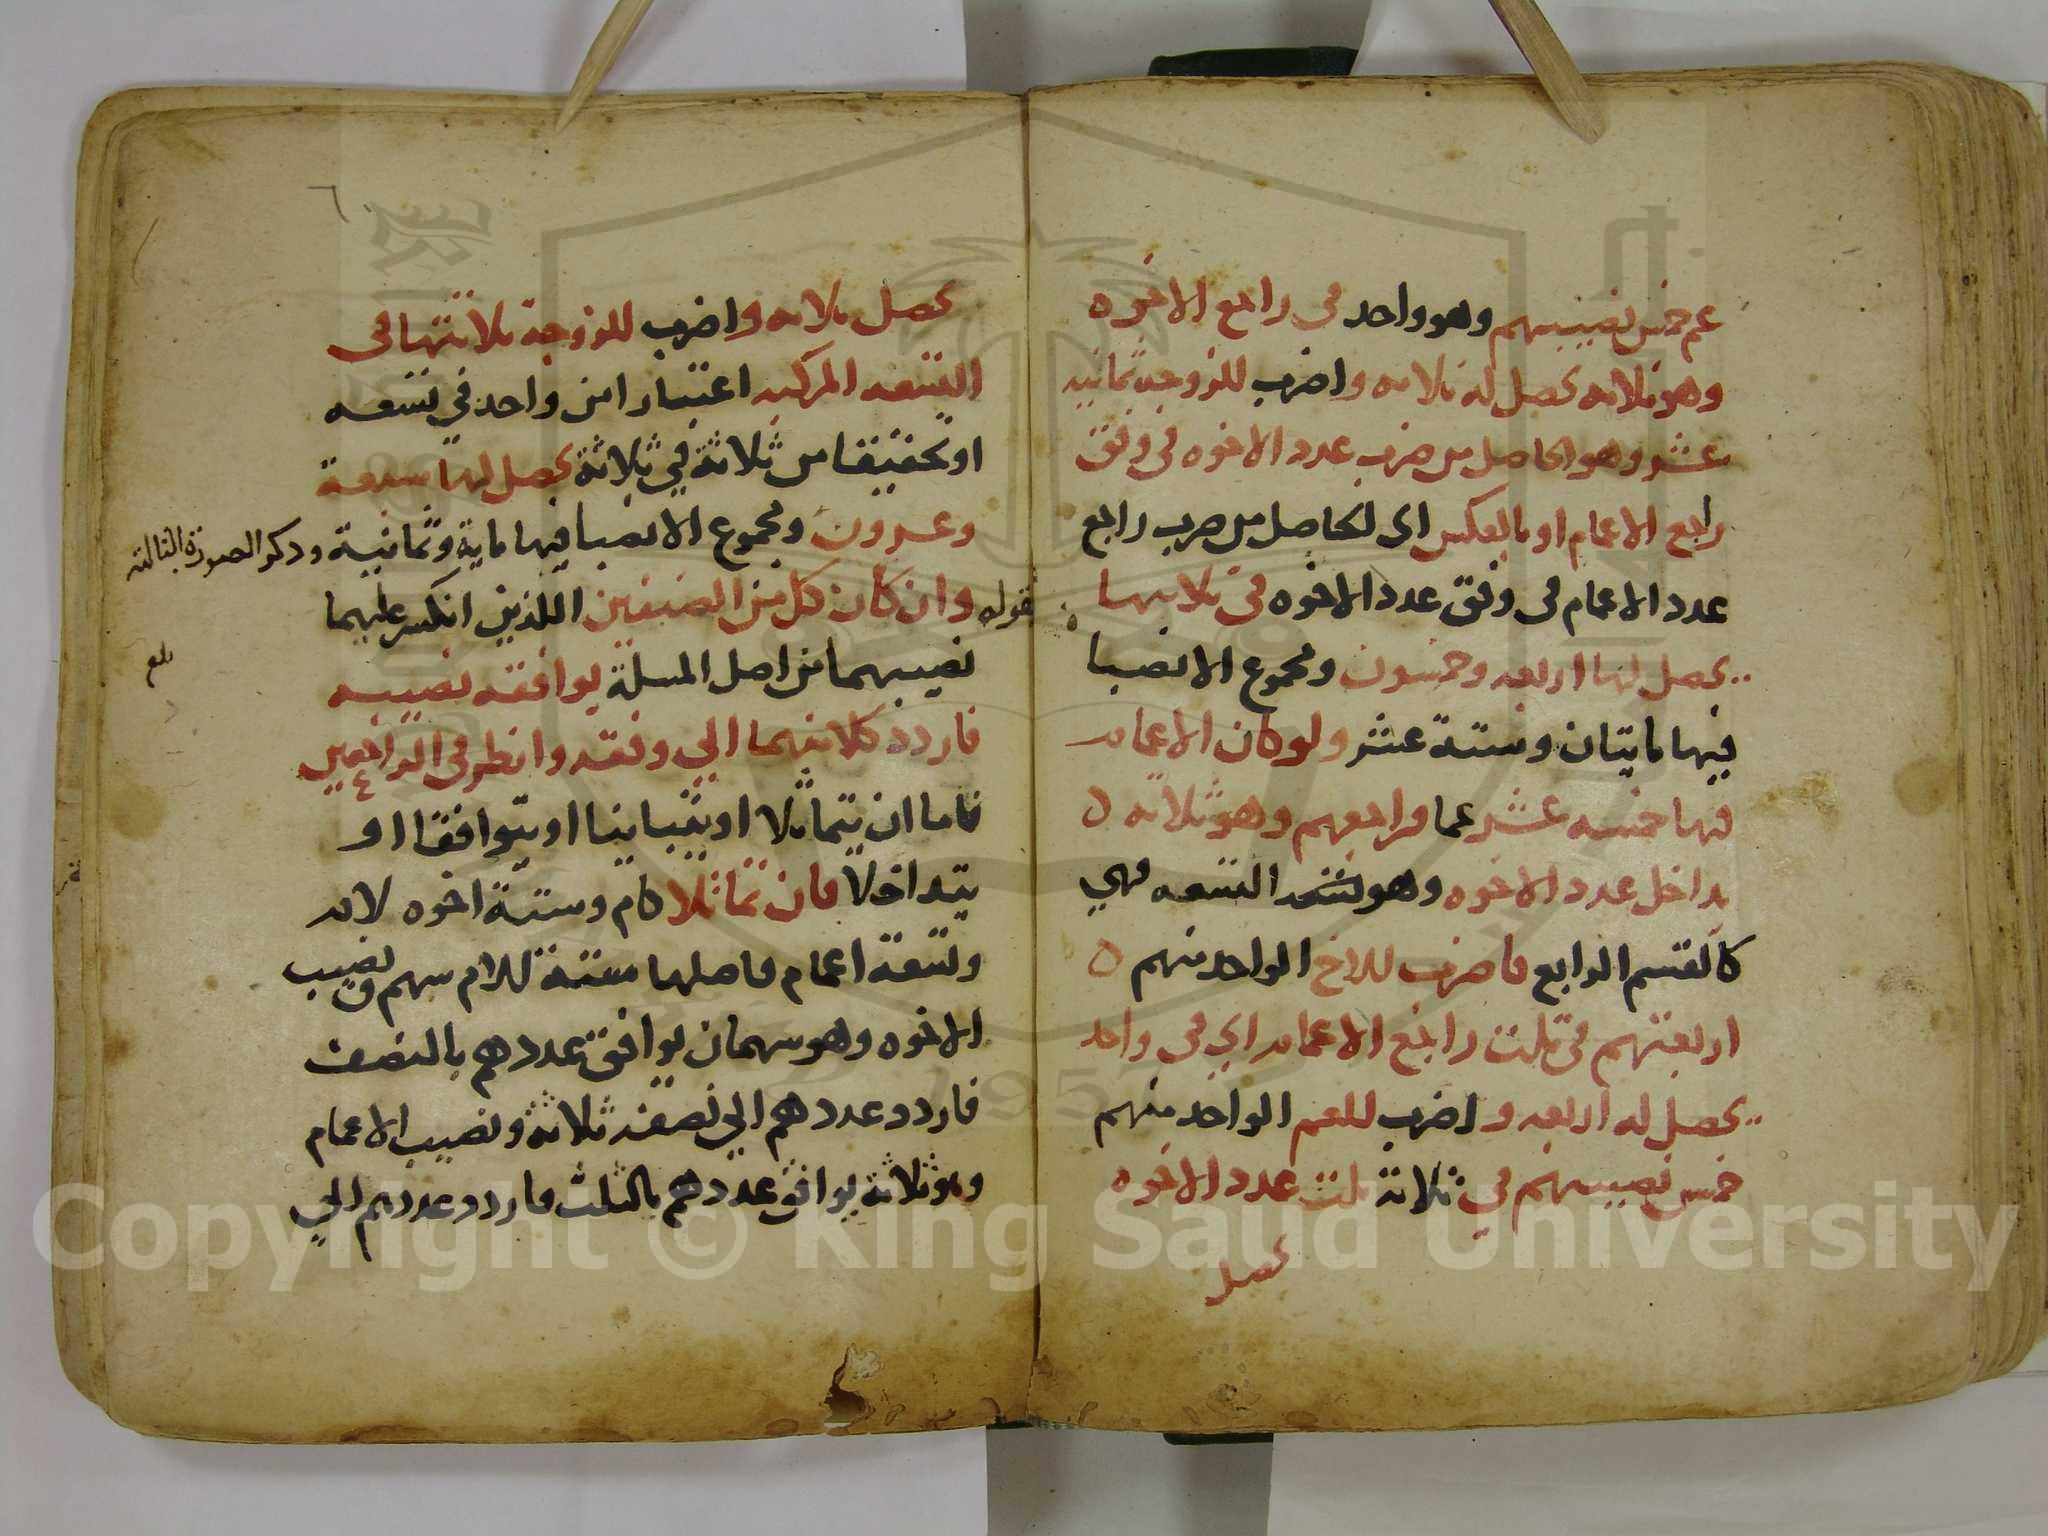 عم خمس نصيبهم وهو واحد في راجع الاخوه
وهو ثلاثه يحصل له ثلاثه واضرب للزوجه ثمانيه
عشر وهو الحاصل من ضرب عدد الاخوه في وفق
راجع الاعمام او بالعكس اى الحاصل من ضرب راجع
عدد الاعمام في وفق عدد الاخوه في ثلاثها
يحصل لها اربعه وخمسون ومجموع الانصبا
فيها مايتان وستة عشر ولو كان الاعمام
فيها خمسه عشر عما فراجعهم وهو ثلاثه
يداخل عدد الاخوه وهو التسعه فهي
كالقسم الرابع فاضرب للاخ الواحد منهم
اربعتهم في ثلث راجع الاعمام اي في واحد
يحصل له اربعه واضرب للعم الواحد منهم
خمس نصيبهم في ثلاثة ثلث عدد الاخوه
يحصل
٦
يحصل ثلاثه واضرب للزوجة ثلاثتها في
التسعه المركبه اعتبارا من واحد في تسعه
او تحقيقا من ثلاثة في ثلاثة يحصل لها سبعة
وعشرون ومجموع الانصبا فيها ماية وثمانية وذكر الصورة الثالثه
بقوله وان كان كل من الصنفين اللذين انكسر عليهما
نصيبهما من اصل المسلة يوافقه نصيبه
فاردد كلا منهما الي وفقه وانظر في الراجعين
فاما ان يتماثلا او يتباينا او يتوافقا او
يتداخلا فان تماثلا كام وستة اخوه لام
وتسعة اعمام فاصلها ستة للام سهم ونصيب
الاخوه وهو سهمان يوافق عددهم بالنصف
فاردد عددهم الي نصفه ثلاثة ونصيب الاعمام
وهو ثلاثة يوافق عددهم بالثلث فاردد عددهم الي
بلغ
Copyright © King Saud University
1957